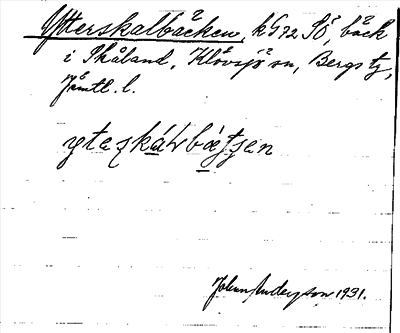 Ytterskalbäcken, k G 72 SÖ, bäck
i Skåland, Klövsjö sn, Bergs tg,
Jämtl. l.
yteskálrbǿtsen
Johan Anderzson 1931.